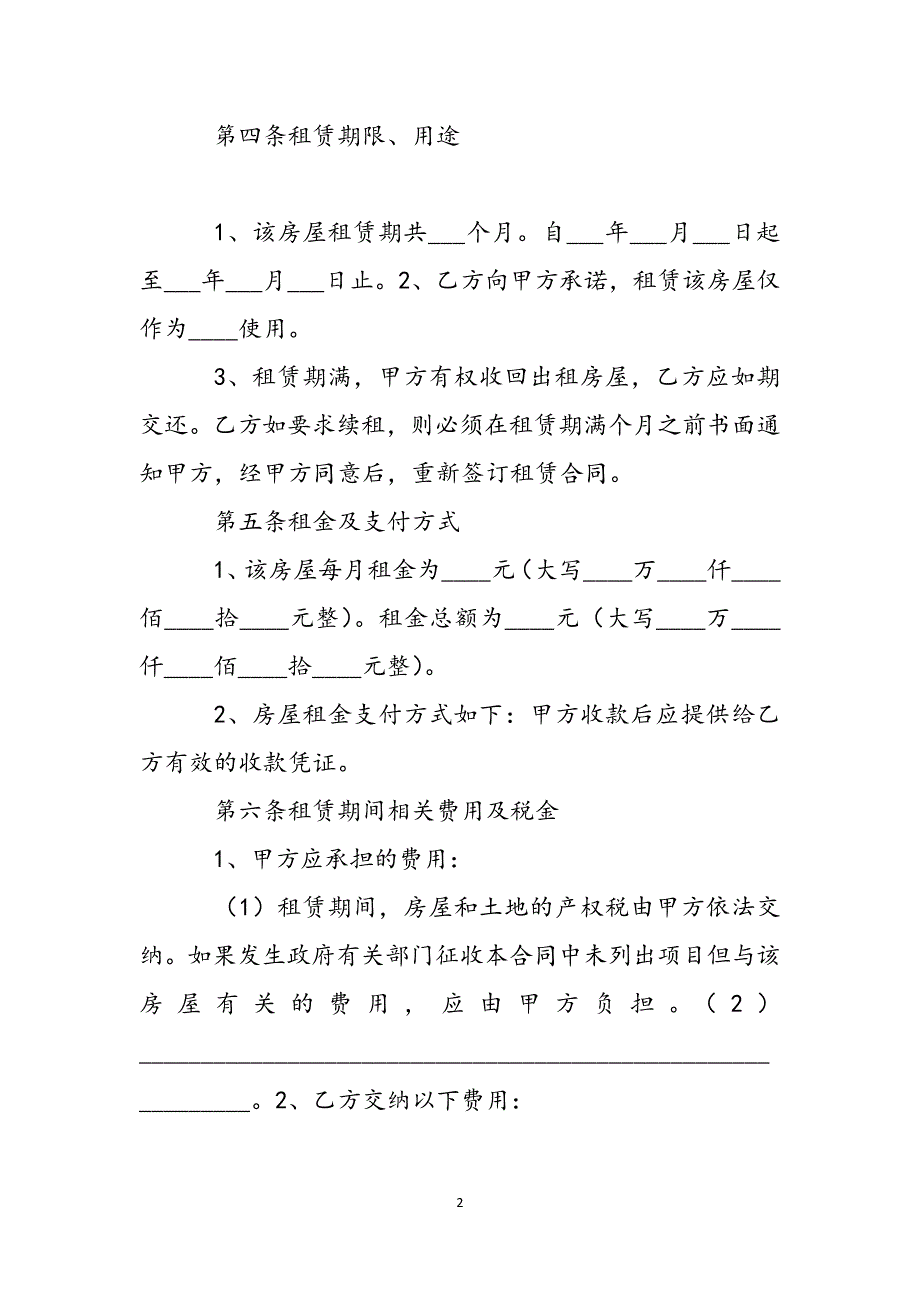 第四条租赁期限、用途
1、该房屋租赁期共___个月。自___年___月___日起
至___年___月___日止。2、乙方向甲方承诺，租赁该房屋仅
作为____使用。
3、租赁期满，甲方有权收回出租房屋，乙方应如期
交还。乙方如要求续租，则必须在租赁期满个月之前书面通
知甲方，经甲方同意后，重新签订租赁合同。
第五条租金及支付方式
1、该房屋每月租金为____元（大写____万____仟____
佰____拾____元整）。租金总额为____元（大写____万____
仟____佰____拾____元整）。
2、房屋租金支付方式如下：甲方收款后应提供给乙
方有效的收款凭证。
第六条租赁期间相关费用及税金
1、甲方应承担的费用：
（1）租赁期间，房屋和土地的产权税由甲方依法交
纳。如果发生政府有关部门征收本合同中未列出项目但与该
房屋有关的费用，应由甲方负担。（2）
___________________________________________________
_________。2、乙方交纳以下费用：
2